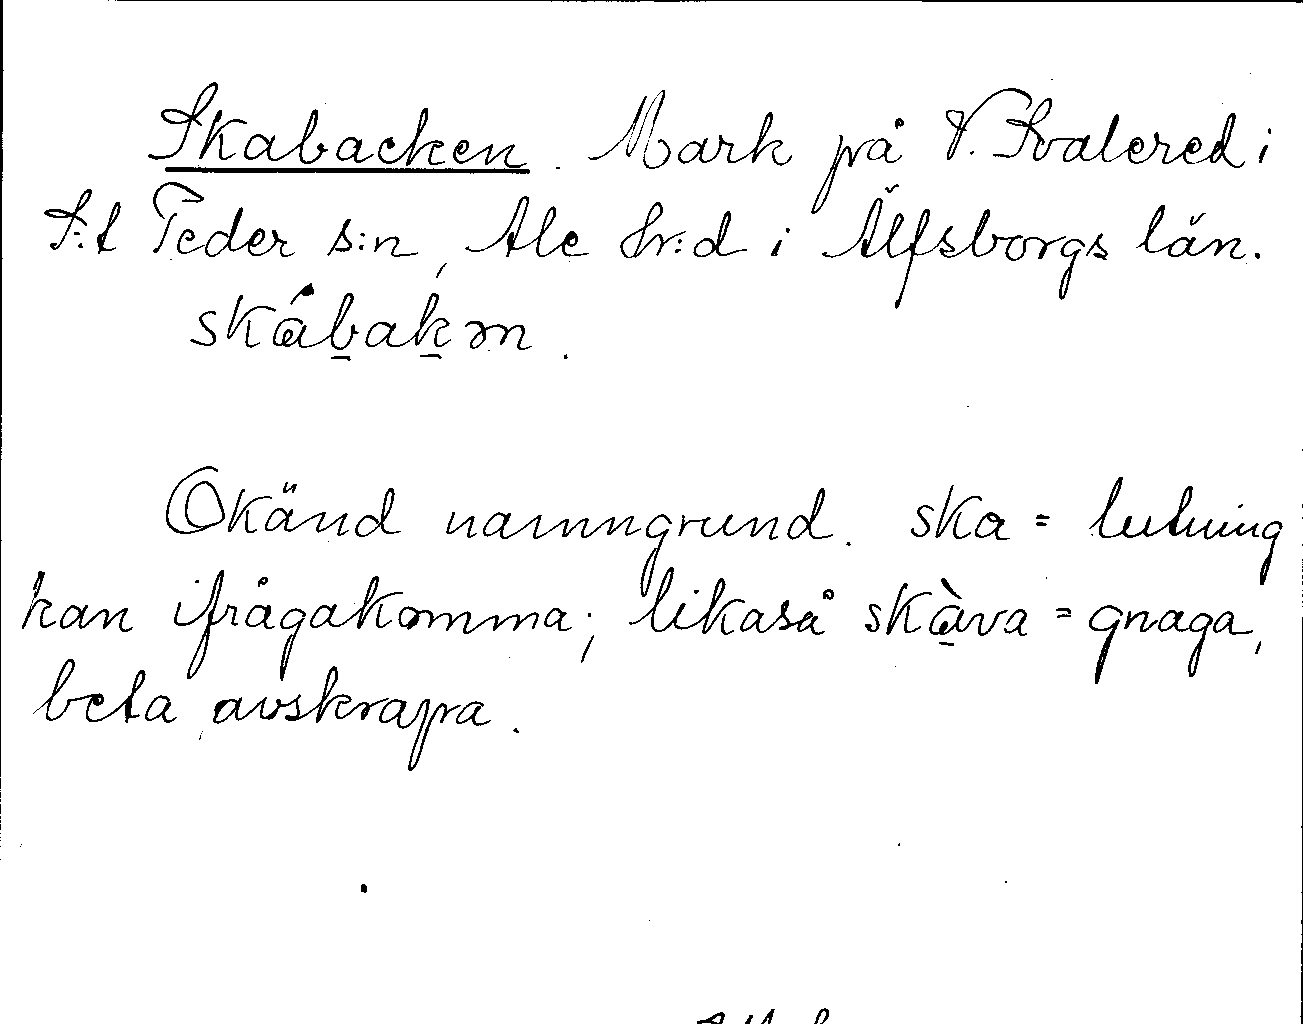 Skabacken. Mark på V. Svalered i
S:t Peder s:n, Ale hr:d i Älfsborgs län.
skábakən.
Okänd namngrund. ska = lutning
kan ifrågakomma; likaså skàva = gnaga,
beta, avskrapa.